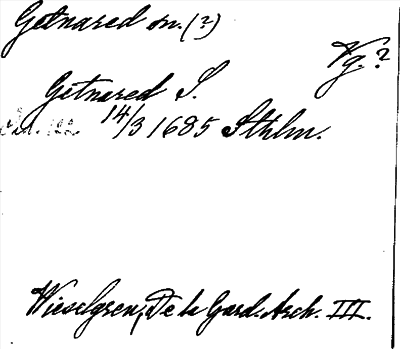 Getnared sn. (?)
Vg.?
Getnared S.
14/3 1685 Sthlm.
Wieselgren, De la Gard. Arch. III.